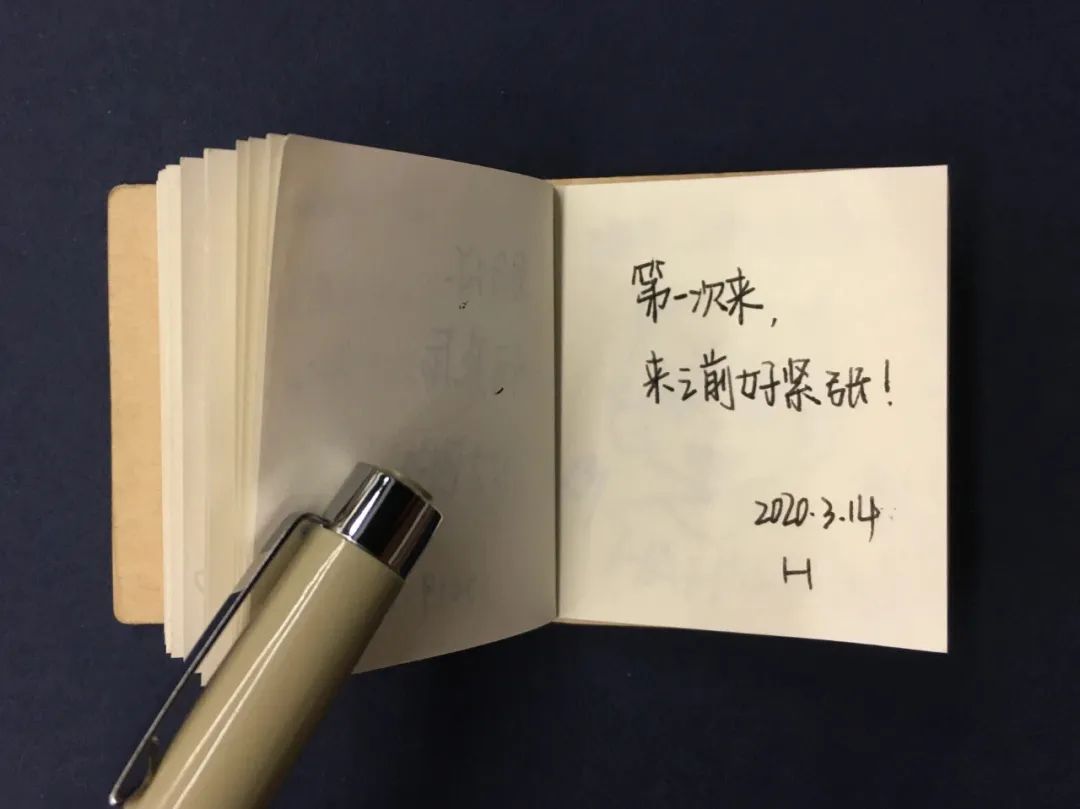 第一次来,
来之前好紧张!
2020.3.14
H